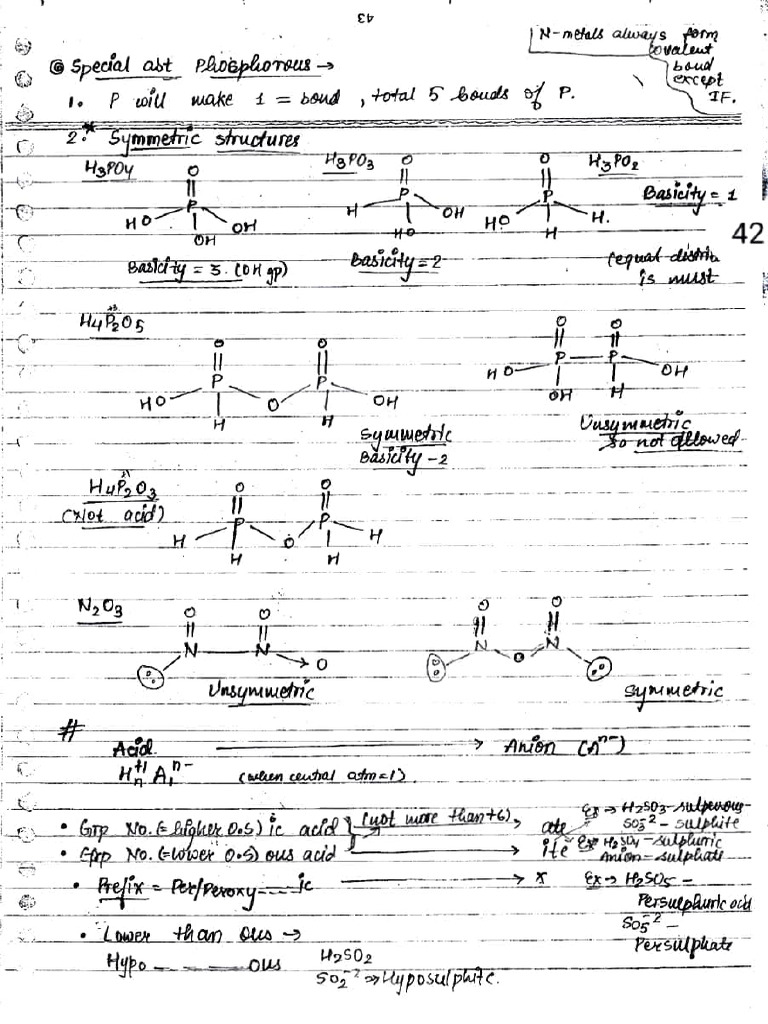 43
N-metals always form
covalent
bond
except
IF.
Special abt Phosphorous →
1. P will make 1 = bond, total 5 bonds of P.
2.* Symmetric structures
H3PO4 H3PO3 H3PO2
O O O
P P P
HO OH OH
H OH HO
HO H H.
Basicity = 1
42
Basicity = 3. (OH gp) Basicity = 2 (equal distribn
is must
H4P2O5 +3
O O O O
P P P P
HO O OH HO OH
H H OH H
Symmetric
Basicity - 2
Unsymmetric
so not allowed
H4P2O3 +1
(Not acid)
O O
P P
H O H
H H
N2O3
O O O O
N N → O N O N
Unsymmetric Symmetric
#
Acid → Anion (A^n-)
Hn^+1 A1^n- (when central atm=1).
• Grp No. (= higher O.S) ic acid (not more than +6), ate Ex → H2SO3 - sulperous
SO3^-2 - sulphite
• Grp No. (= lower O.S) ous acid → ite Ex H2SO4 - sulphuric
Anion - sulphate
• Prefix = Per/Peroxy ---- ic → x Ex → H2SO5 -
Persulphuric acid
SO5^-2 -
Persulphate
• Lower than ous →
Hypo ---- ous H2SO2
SO2^-2 ⇒ Hyposulphite.